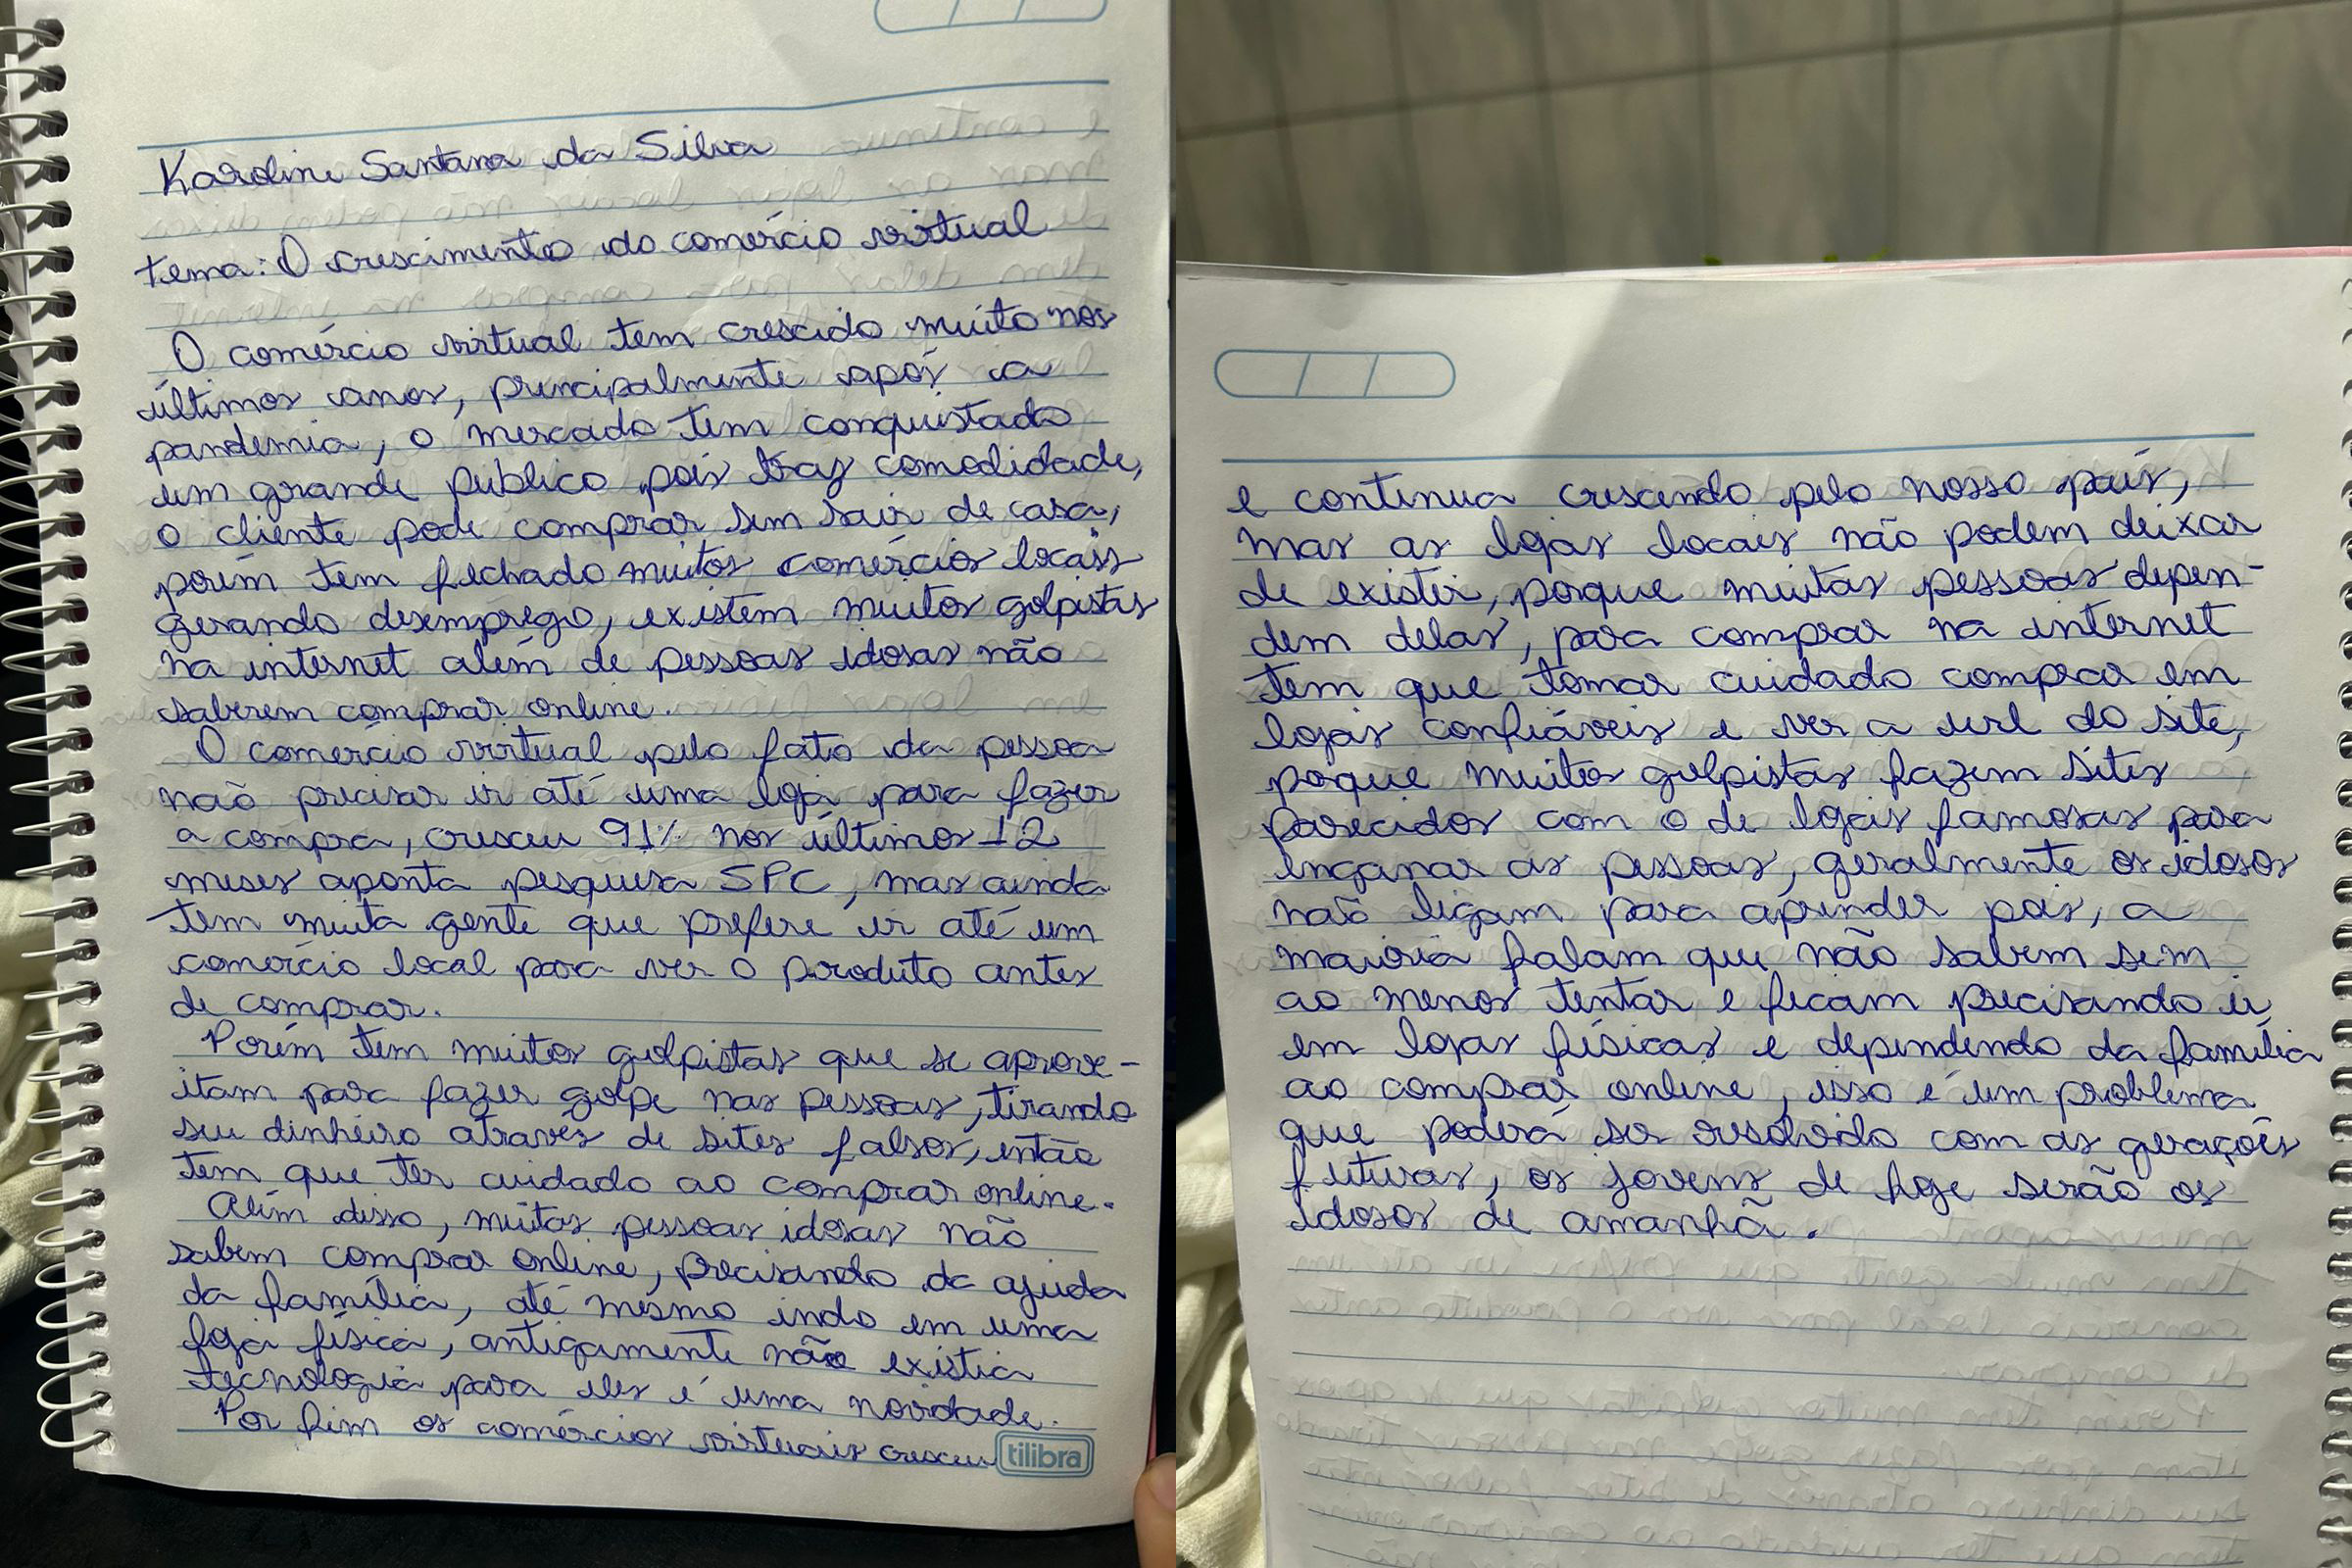 Karoline Santana da Silva
tema: O crescimento do comércio virtual
O comércio virtual tem crescido muito nos
últimos anos, principalmente após a
pandemia, o mercado tem conquistado
um grande publico pois traz comodidade,
o cliente pode comprar sem sair de casa,
porém tem fechado muitos comércios locais
gerando desemprego, existem muitos golpistas
na internet além de pessoas idosas não
saberem comprar online.
O comercio virtual pelo fato da pessoa
não precisar ir até uma loja para fazer
a compra, cresceu 91% nos últimos 12
meses aponta pesquisa SPC, mas ainda
tem muita gente que prefere ir até um
comércio local para ver o produto antes
de comprar.
Porém tem muitos golpistas que se aprove-
itam para fazer golpe nas pessoas, tirando
seu dinheiro através de sites falsos, então
tem que ter cuidado ao comprar online.
Além disso, muitas pessoas idosas não
sabem comprar online, precisando da ajuda
da família, até mesmo indo em uma
loja física, antigamente não existia
tecnologia para eles é uma novidade.
Por fim os comércios virtuais cresceu
tilibra
e continua crescendo pelo nosso país,
mas as lojas locais não podem deixar
de existir, porque muitas pessoas depen-
dem delas, para comprar na internet
tem que tomar cuidado comprar em
lojas confiáveis e ver a url do site,
porque muitos golpistas fazem sites
parecidos com o de lojas famosas para
enganar as pessoas, geralmente os idosos
não ligam para aprender pois, a
maioria falam que não sabem sem
ao menos tentar e ficam precisando ir
em lojas físicas e dependendo da família
ao comprar online, isso é um problema
que poderá ser resolvido com as gerações
futuras, os jovens de hoje serão os
idosos de amanhã.